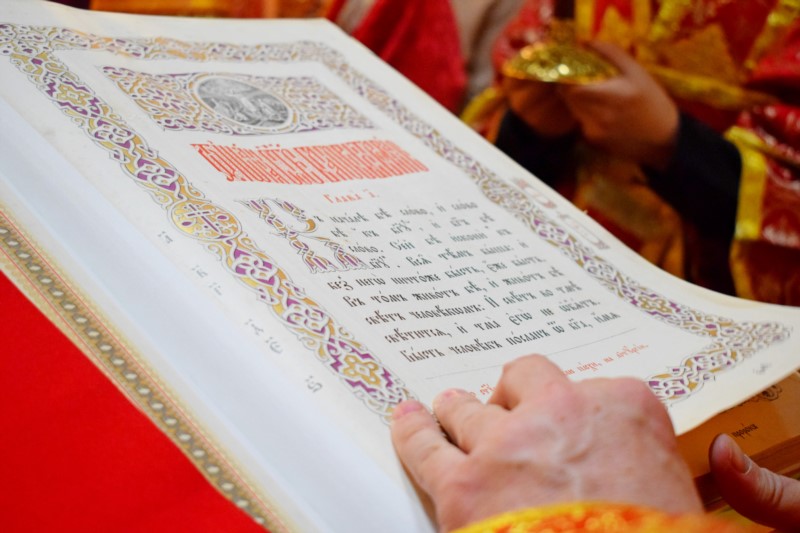 Глава̀ а҃.
Въ нача́лѣ бѣ̀ сло́во, и҆ сло́во
бѣ̀ къ бг҃ꙋ, и҆ бг҃ъ бѣ̀
сло́во. Се́й бѣ̀ и҆сконѝ къ
бг҃ꙋ: Всѧ̑ тѣ́мъ бы́ша: и҆
без̾ негѡ̀ ничто́же бы́сть, є҆́же бы́сть.
Въ то́мъ живо́тъ бѣ̀, и҆ живо́тъ бѣ̀
свѣ́тъ человѣ́кѡмъ: И҆ свѣ́тъ во тмѣ̀
свѣ́титсѧ, и҆ тма̀ є҆гѡ̀ не ѡ҆б̾ѧ́тъ.
Бы́сть человѣ́къ по́сланъ ѿ бг҃а, и҆́мѧ